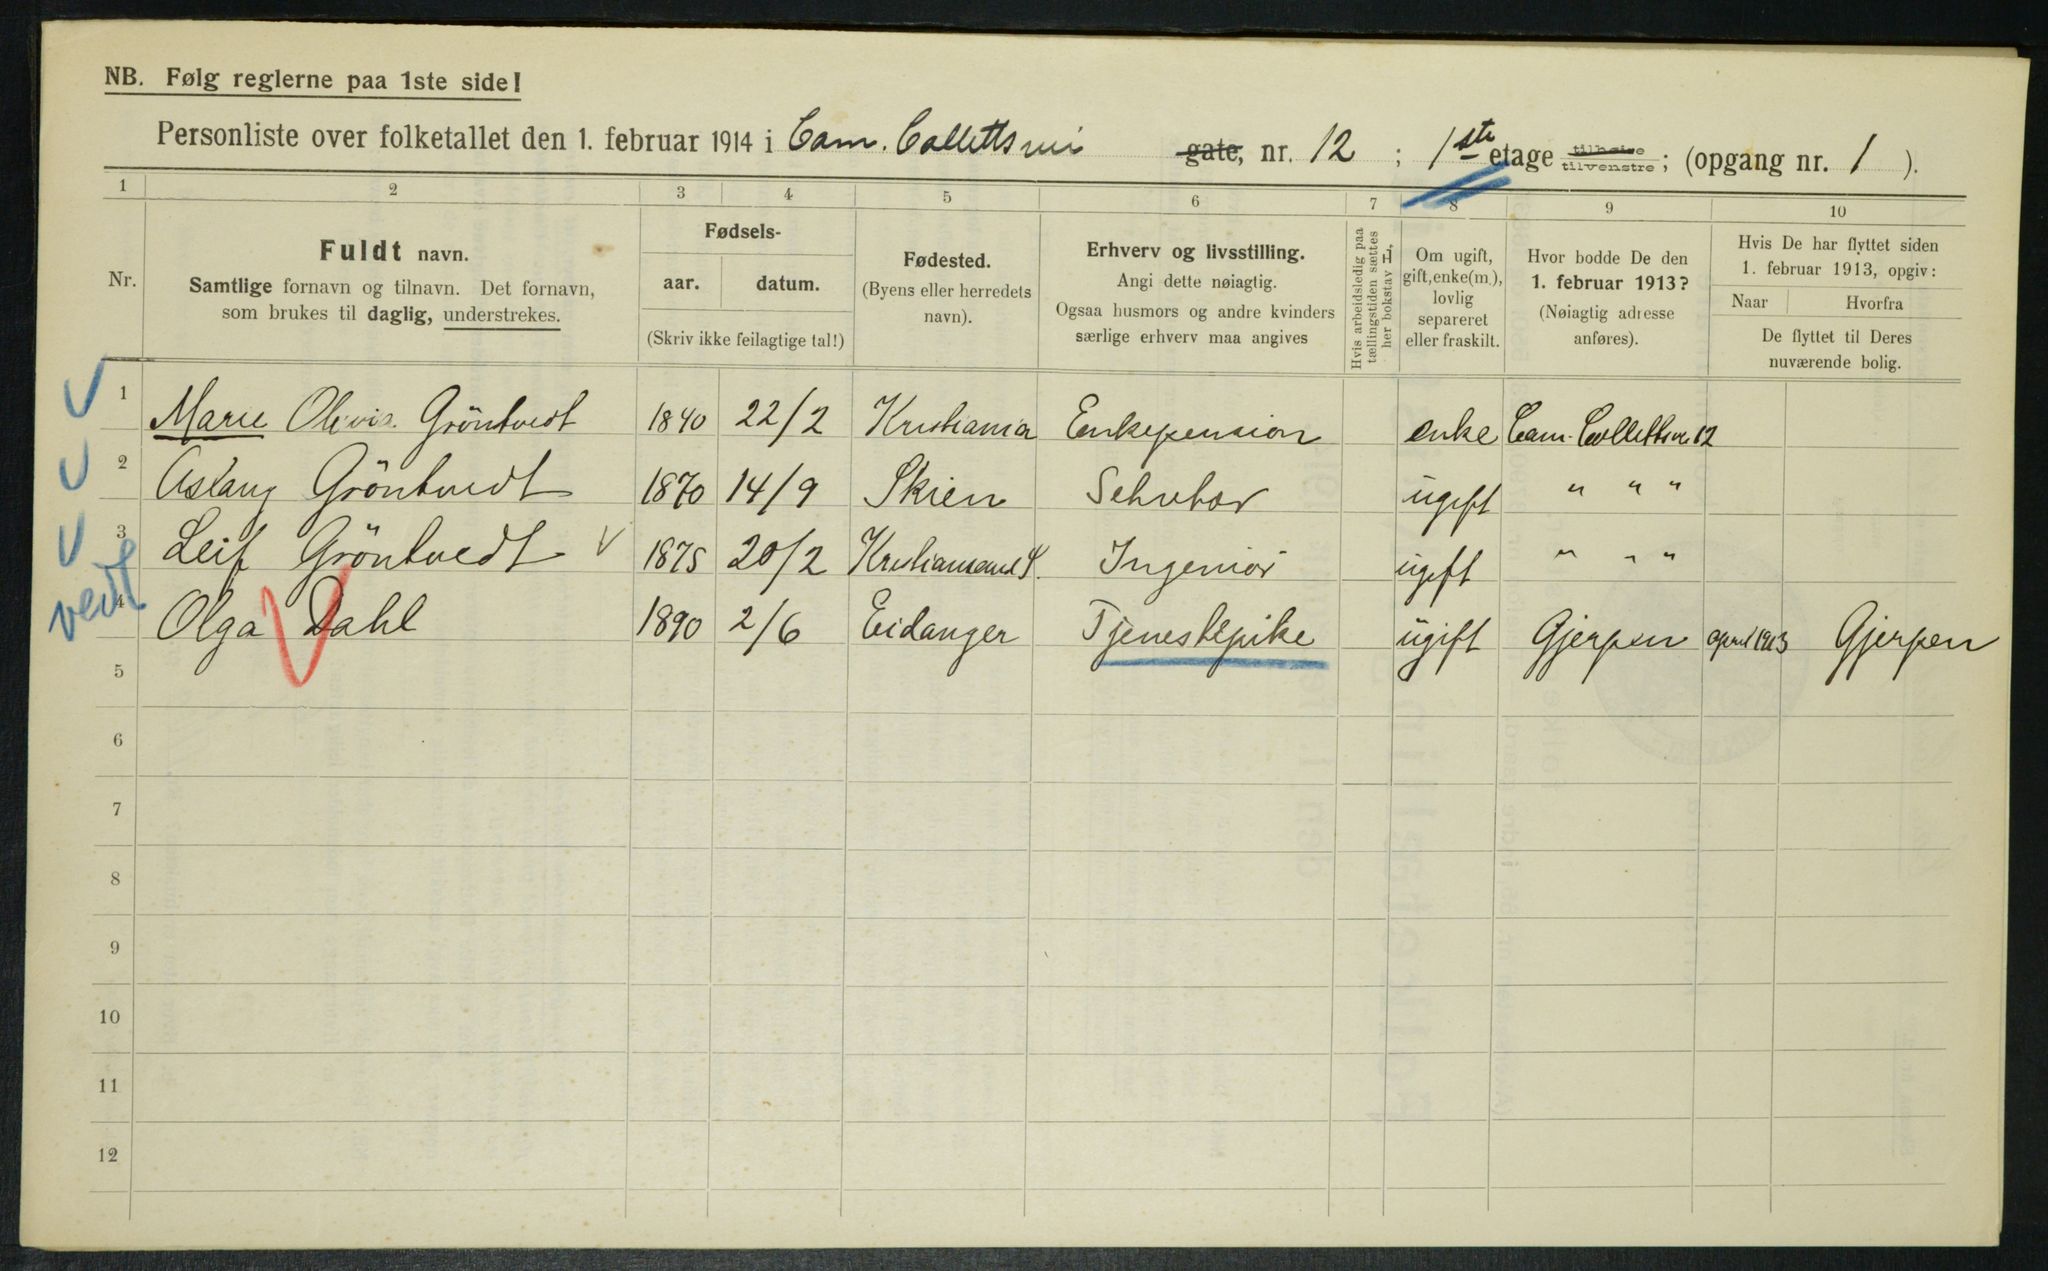 NB. Følg reglerne paa 1ste side!
Personliste over folketallet den 1. februar 1914 i Cam. Collettsvei gate, nr. 12 ; 1ste etage tilhøire tilvenstre; (opgang nr. 1 ).
1 2 3 4 5 6 7 8 9 10
Nr.
Fuldt navn.
Samtlige fornavn og tilnavn. Det fornavn,
som brukes til daglig, understrekes.
Fødsels-
aar. datum.
(Skriv ikke feilagtige tal!)
Fødested.
(Byens eller herredets
navn).
Erhverv og livsstilling.
Angi dette nøiagtig.
Ogsaa husmors og andre kvinders
særlige erhverv maa angives
Hvis arbeidsledig paa
tællingstiden sættes
her bokstav L,
Om ugift,
gift, enke(m.),
lovlig
separeret
eller fraskilt.
Hvor bodde De den
1. februar 1913?
(Nøiagtig adresse
anføres).
Hvis De har flyttet siden
1. februar 1913, opgiv:
Naar Hvorfra
De flyttet til Deres
nuværende bolig.
1 Marie Olivia Gröntvedt 1840 22/2 Kristiania Enkepension enke Cam. Collettsv. 12
2 Aslaug Gröntvedt 1870 14/9 Skien ugift " " "
3 Leif Gröntvedt 1875 20/2 Kristiansand S. Ingeniör ugift " " "
vedt
4 Olga Dahl 1890 2/6 Eidanger Tjenestepike ugift Gjerpen april 1913 Gjerpen
5
6
7
8
9
10
11
12